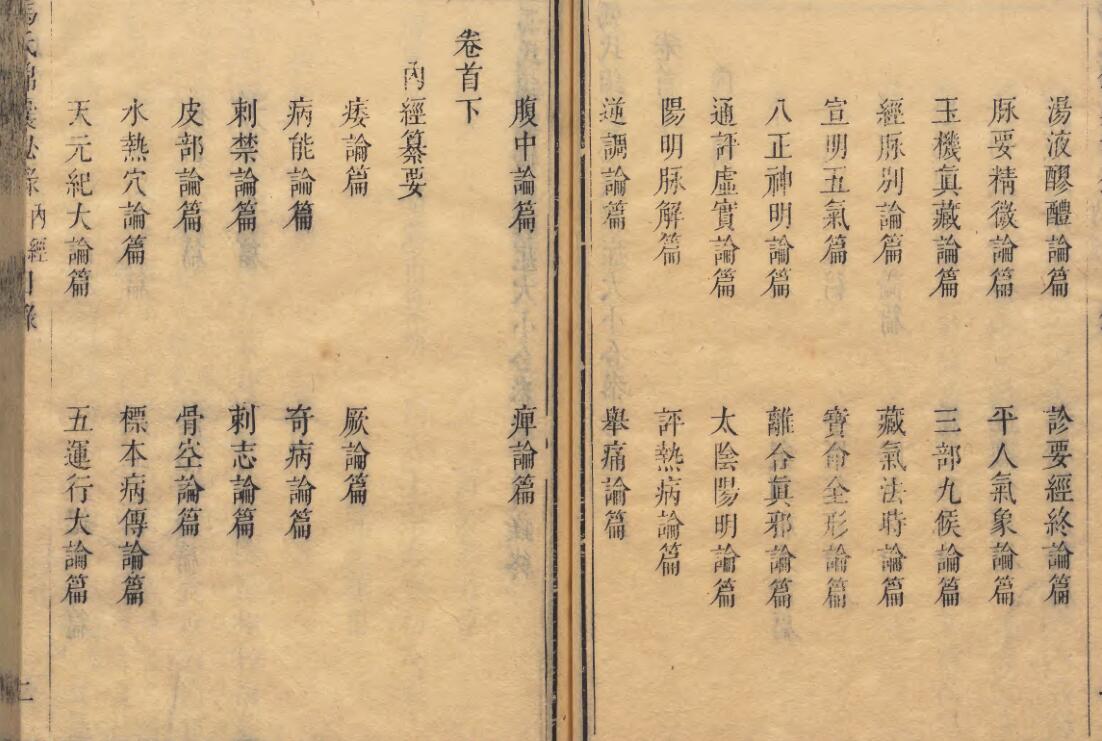 湯液醪醴論篇　診要經終論篇
脉要精微論篇　平人氣象論篇
玉機眞藏論篇　三部九候論篇
經脉別論篇　藏氣法時論篇
宣明五氣篇　寶命全形論篇
八正神明論篇　離合眞邪論篇
通評虛實論篇　太陰陽明論篇
陽明脉解篇　評熱病論篇
逆調論篇　舉痛論篇
腹中論篇　痺論篇
卷首下
內經纂要
痿論篇　厥論篇
病能論篇　奇病論篇
刺禁論篇　刺志論篇
皮部論篇　骨空論篇
水熱穴論篇　標本病傳論篇
天元紀大論篇　五運行大論篇
馮氏錦囊秘錄　內經目錄　二